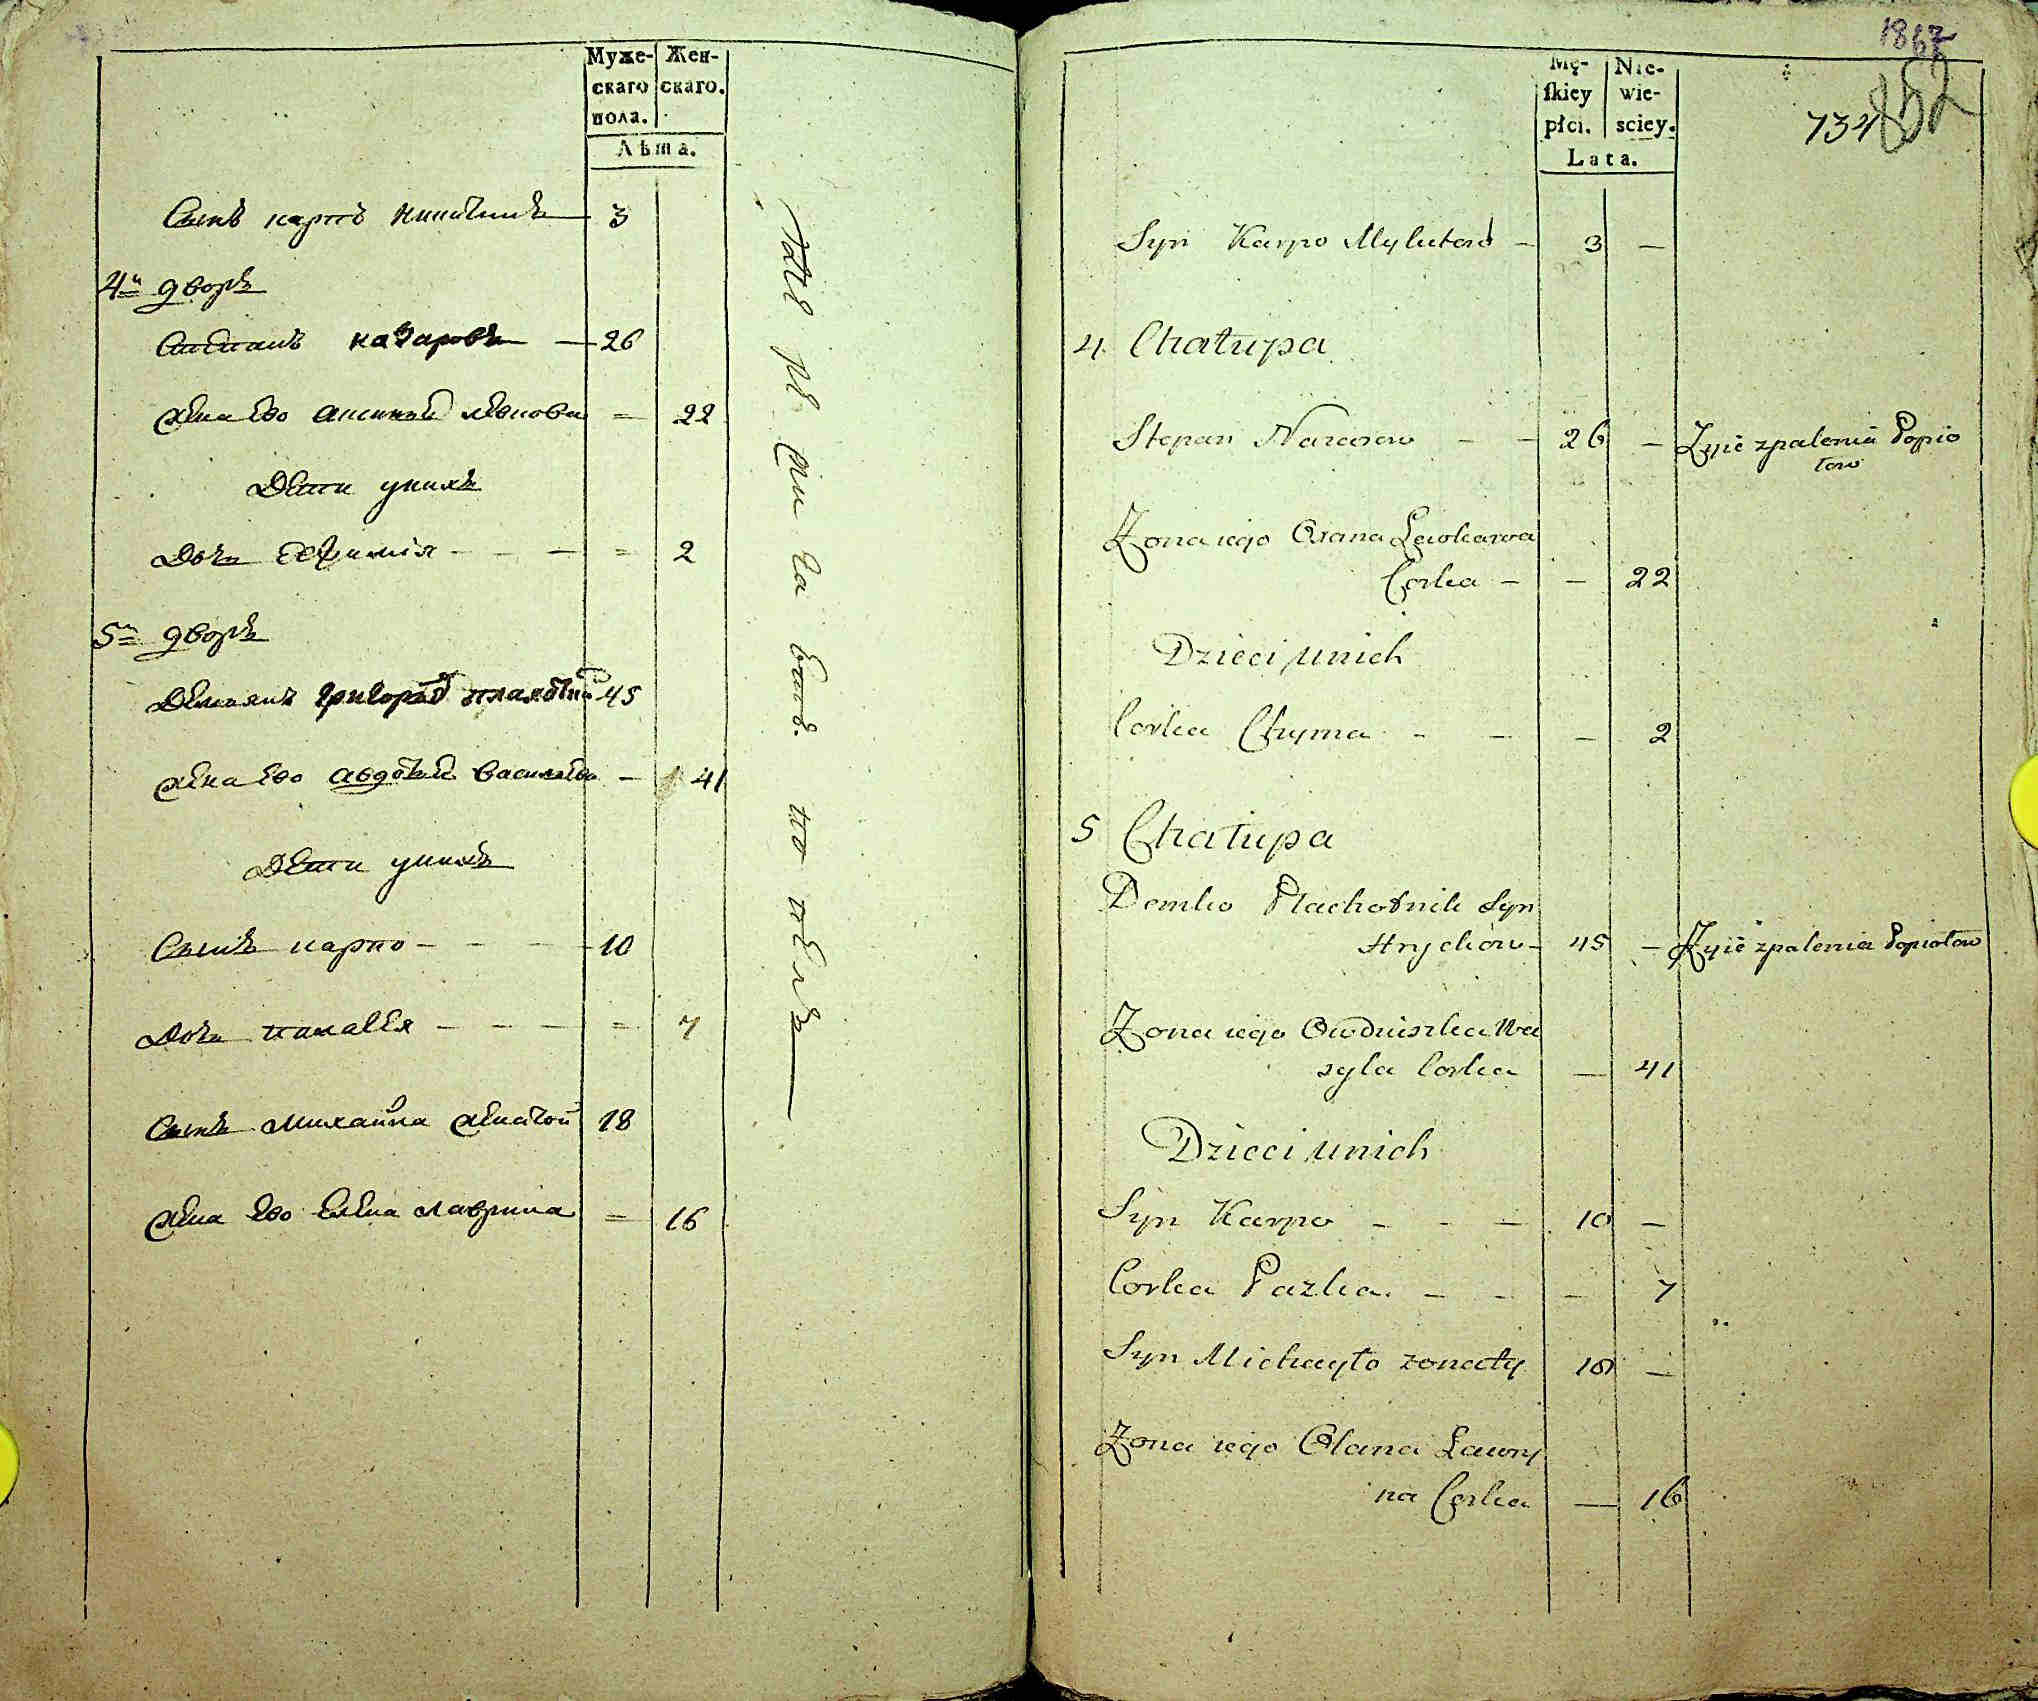 Муже-
скаго
пола.
Жен-
скаго.
Лѣта.
Сынъ карпъ 3
4й дворъ
Степанъ назаровъ — 26
Жена ево левкова — 22
Дети унихъ
Дочь Ефимия - - - = 2
5й дворъ
Демянъ григорьев плахотник 45
Жена ево авдотья василева — 41
Дети унихъ
Сынъ карпо - - - 10
Дочь пелагея - - - = 7
Сынъ михаила женатой 18
Жена ево елена лаврина = 16
1867
Mę-
skiey
płci.
Nie-
wie-
sciey.
Lata.
734
852
Syn Karpo Mykitow - 3 —
4. Chałupa
Stepan Nazarow - - 26 — Zyie zpalenia Popio
łow
Zona iego Oxana Lewkowa
Corka - - 22
Dzieci unich
Corka Chyma - - - 2
5 Chałupa
Demko Płachotnik Syn
Hryckow - 45 — Zyie zpalenia Popiołow
Zona iego Owduszka Wa
syla Corka — 41
Dzieci unich
Syn Karpo - - - 10 —
Corka Pazka. - - - 7
Syn Michayło zonaty 18 —
Zona iego Olana Ławry
na Corka — 16